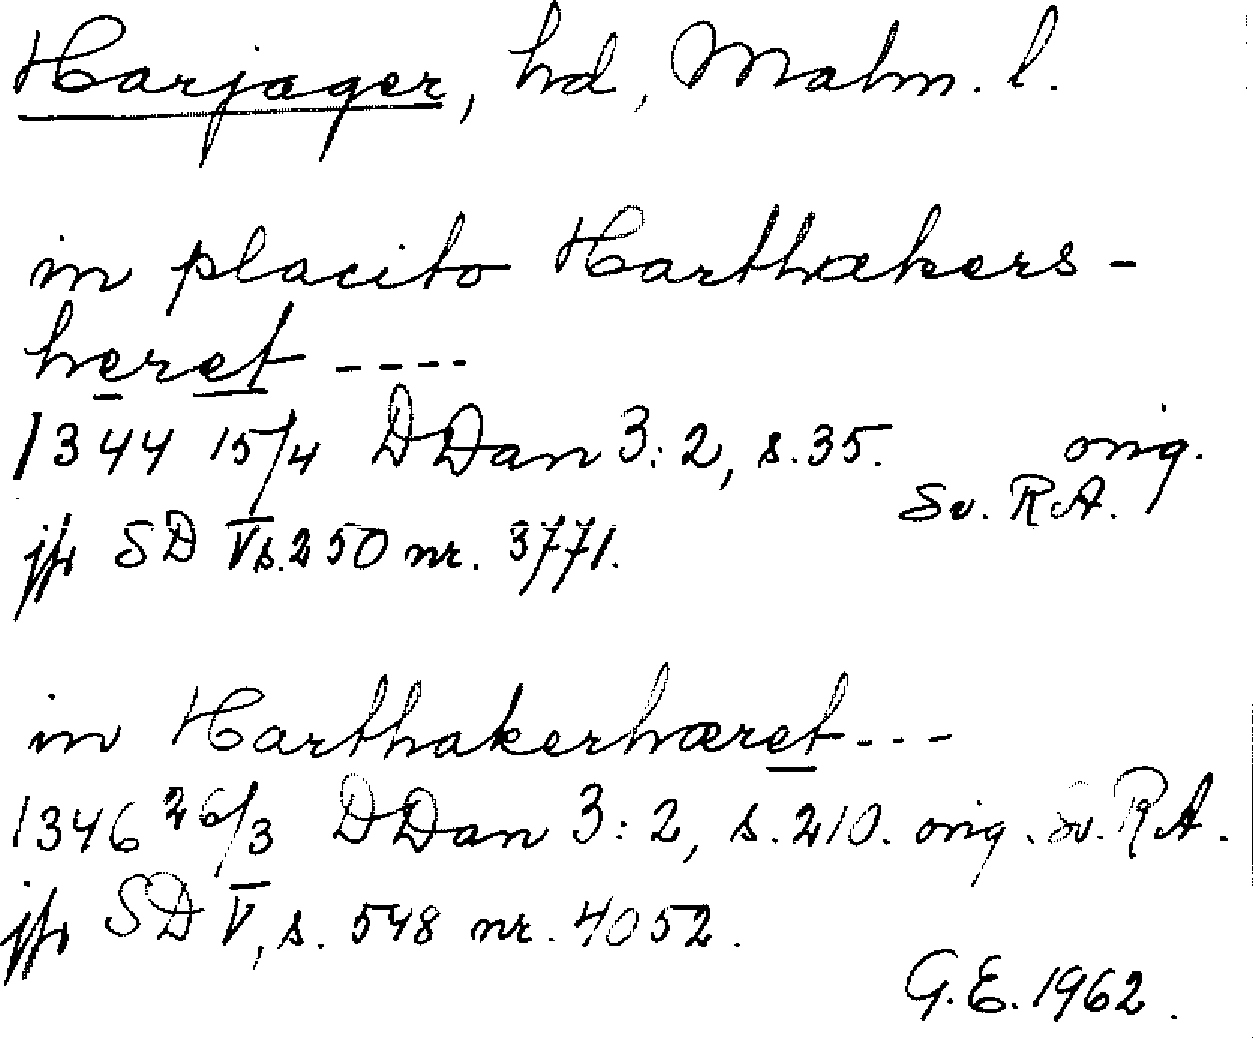 Harjager, hd, Malm. l.
in placito Harthakers-
heret ----
1344 15/4 DDan 3:2, s. 35. orig.
Sv. R.A.
jfr SD V s. 250 nr. 3771.
in Harthakerhæret---
1346 26/3 DDan 3:2, s. 210. orig. Sv. R.A.
jfr SD V, s. 548 nr. 4052.
G.E. 1962.